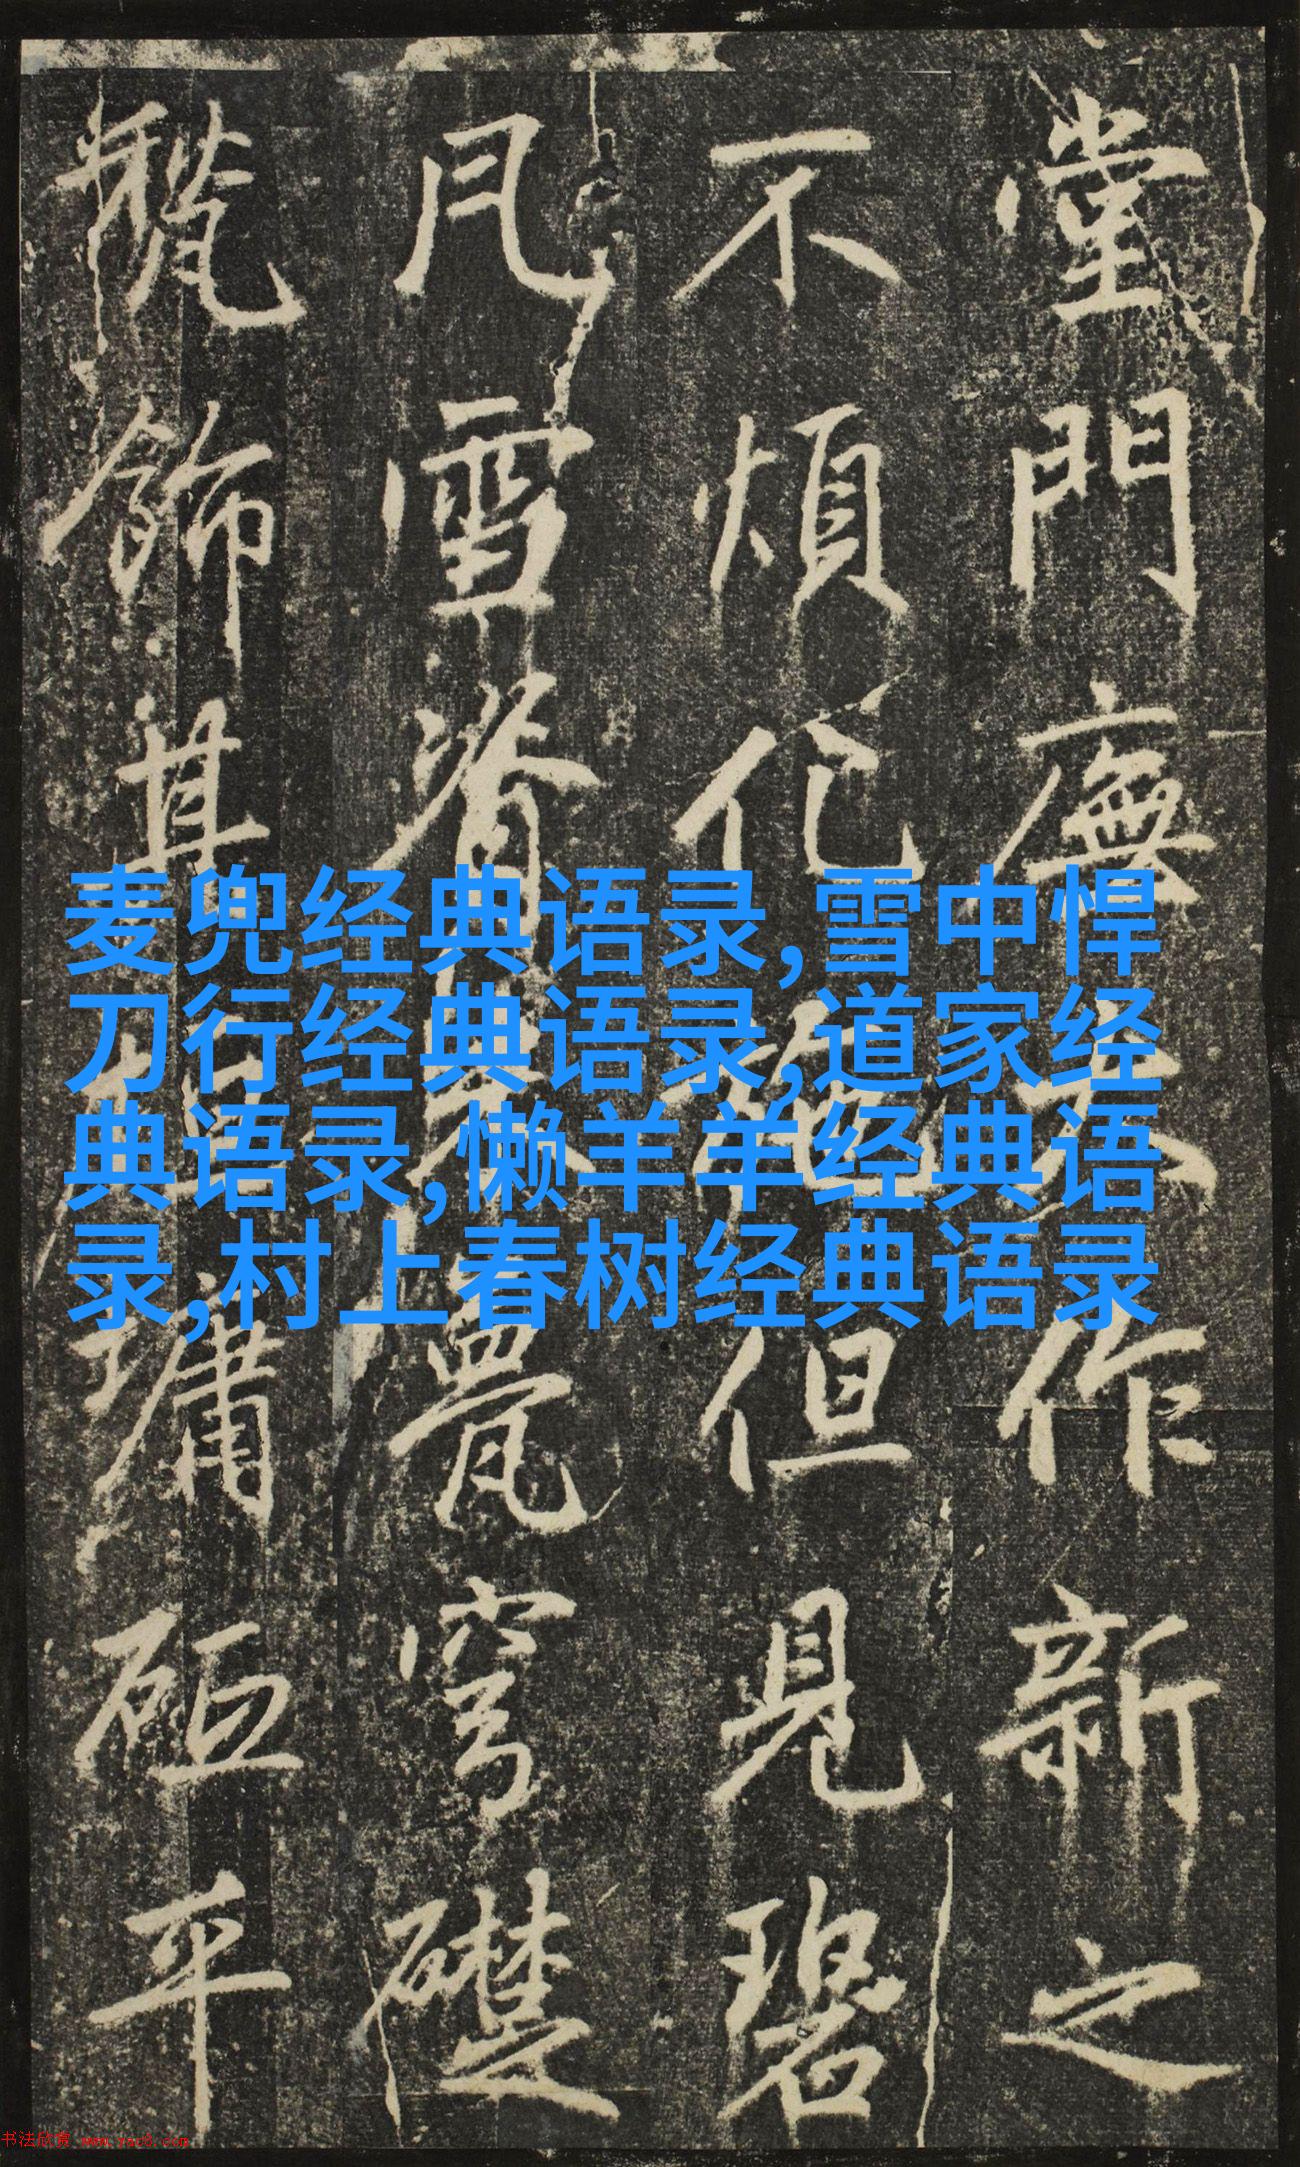 麦兜经典语录,雪中悍
刀行经典语录,道家经
典语录,懒羊羊经典语
录,村上春树经典语录
堂門廡作新之
不煩化但見碧
雪脊甍穹礎
飾其墉砠平
书法欣赏 www.yac8.com